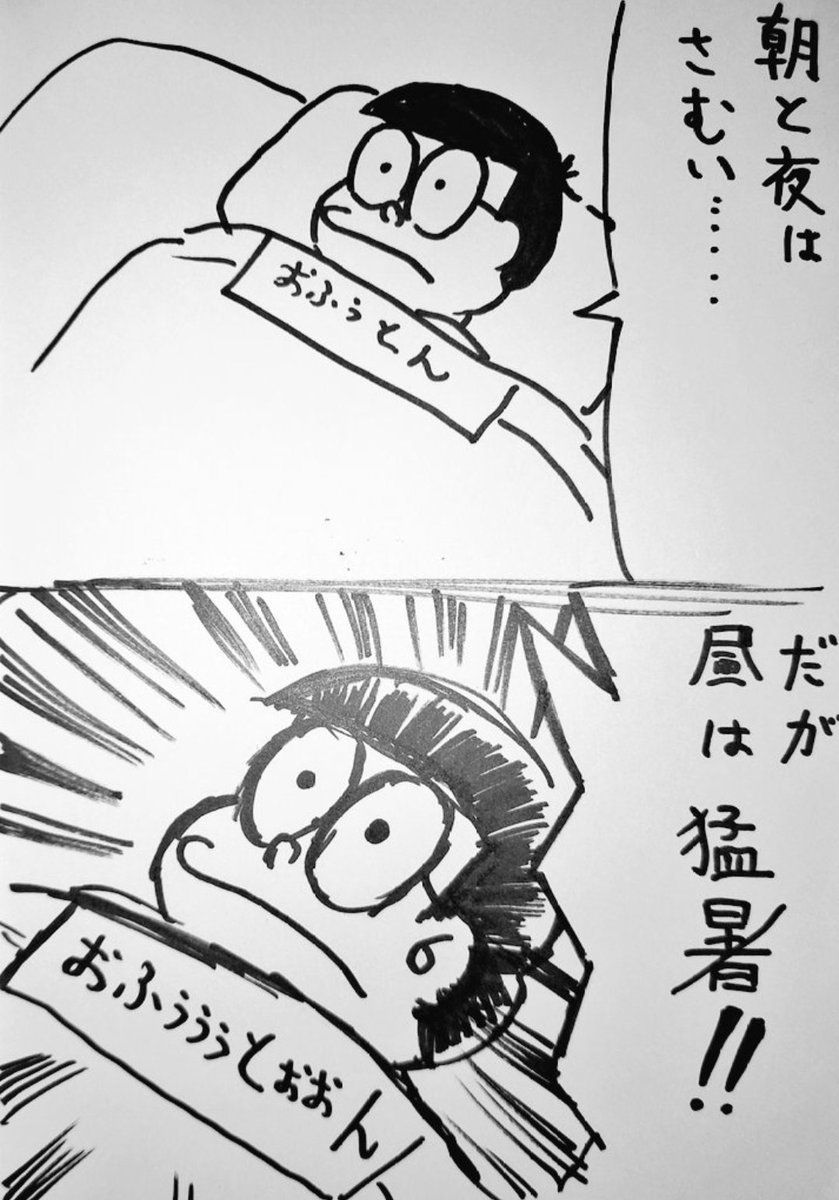 朝と夜は
さむい………
おふぅとん
だが
昼は猛暑!!
おふぅぅぅとぉおん